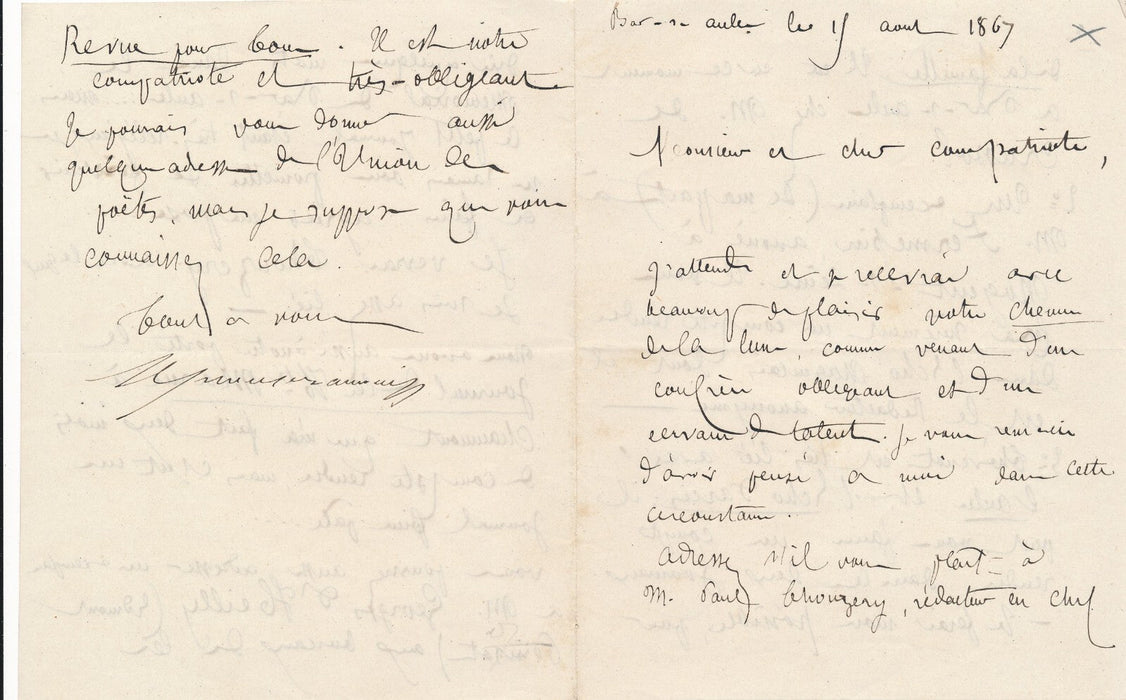 Bar-s-aube le 15 aout 1867
Monsieur et cher compatriote,
J'attends et je recevrai avec
beaucoup de plaisir votre chemin
de la lune, comme venant d'un
confrère obligeant et d'un
ecrivain de talent. Je vous remercie
d'avoir pensé a moi dans cette
circonstance.
Adressez s'il vous plait à
M. Paul, rédacteur en chef
Revue pour tous. Il est notre
compatriote et très-obligeant
Je pourrais vous donner aussi
quelques adresses de l'Union des
poëtes, mais je suppose que vous
connaissez cela.
tout a vous